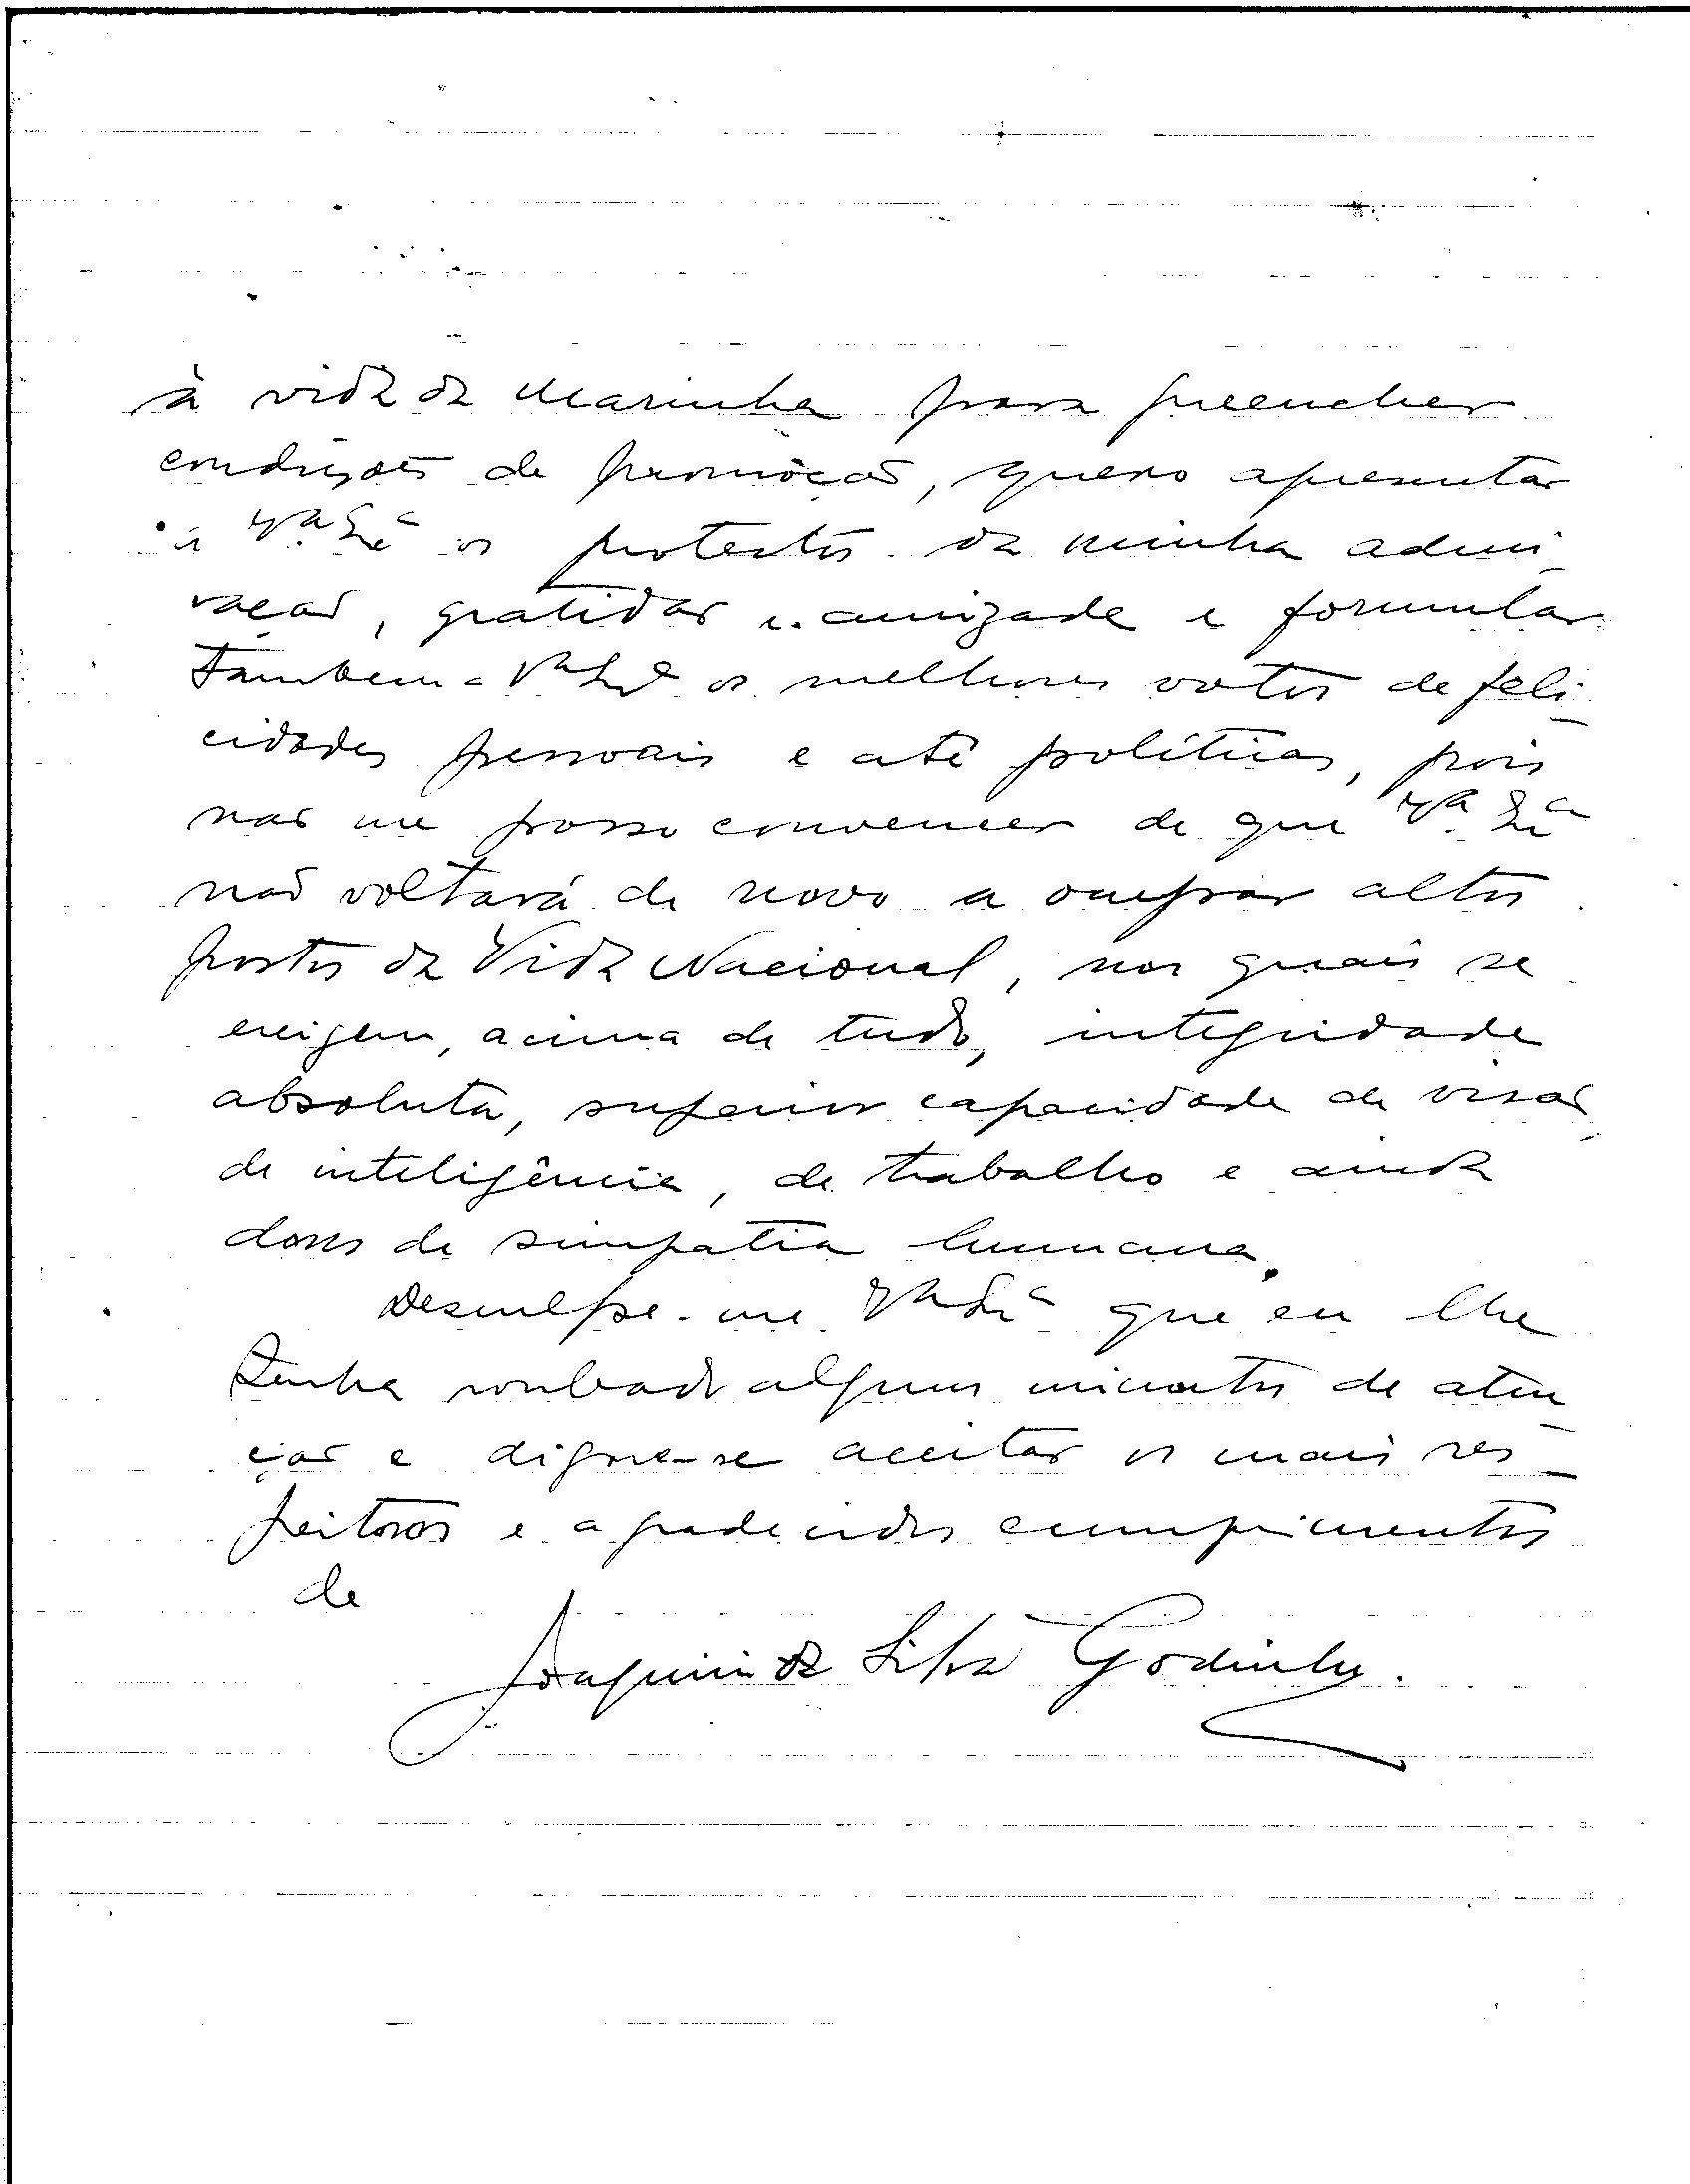 à vida da Marinha para preencher
condições de promoção, quero apresentar
a Vª Exª os protestos da minha admi-
ração, gratidão e amizade e formular
tambem a Vª Exª os melhores votos de feli-
cidades pessoais e até políticas, pois
não me posso convencer de que Vª Exª
não voltará de novo a ocupar altos
postos da Vida Nacional, nos quais se
exigem, acima de tudo, integridade
absoluta, superior capacidade de visão,
de inteligência, de trabalho e ainda
dons de simpatia humana.
Desculpe-me Vª Exª que eu lhe
tenha roubado alguns minutos de aten-
ção e digne-se aceitar os mais res-
peitosos e agradecidos cumprimentos
de
Joaquim da Silva Godinho.